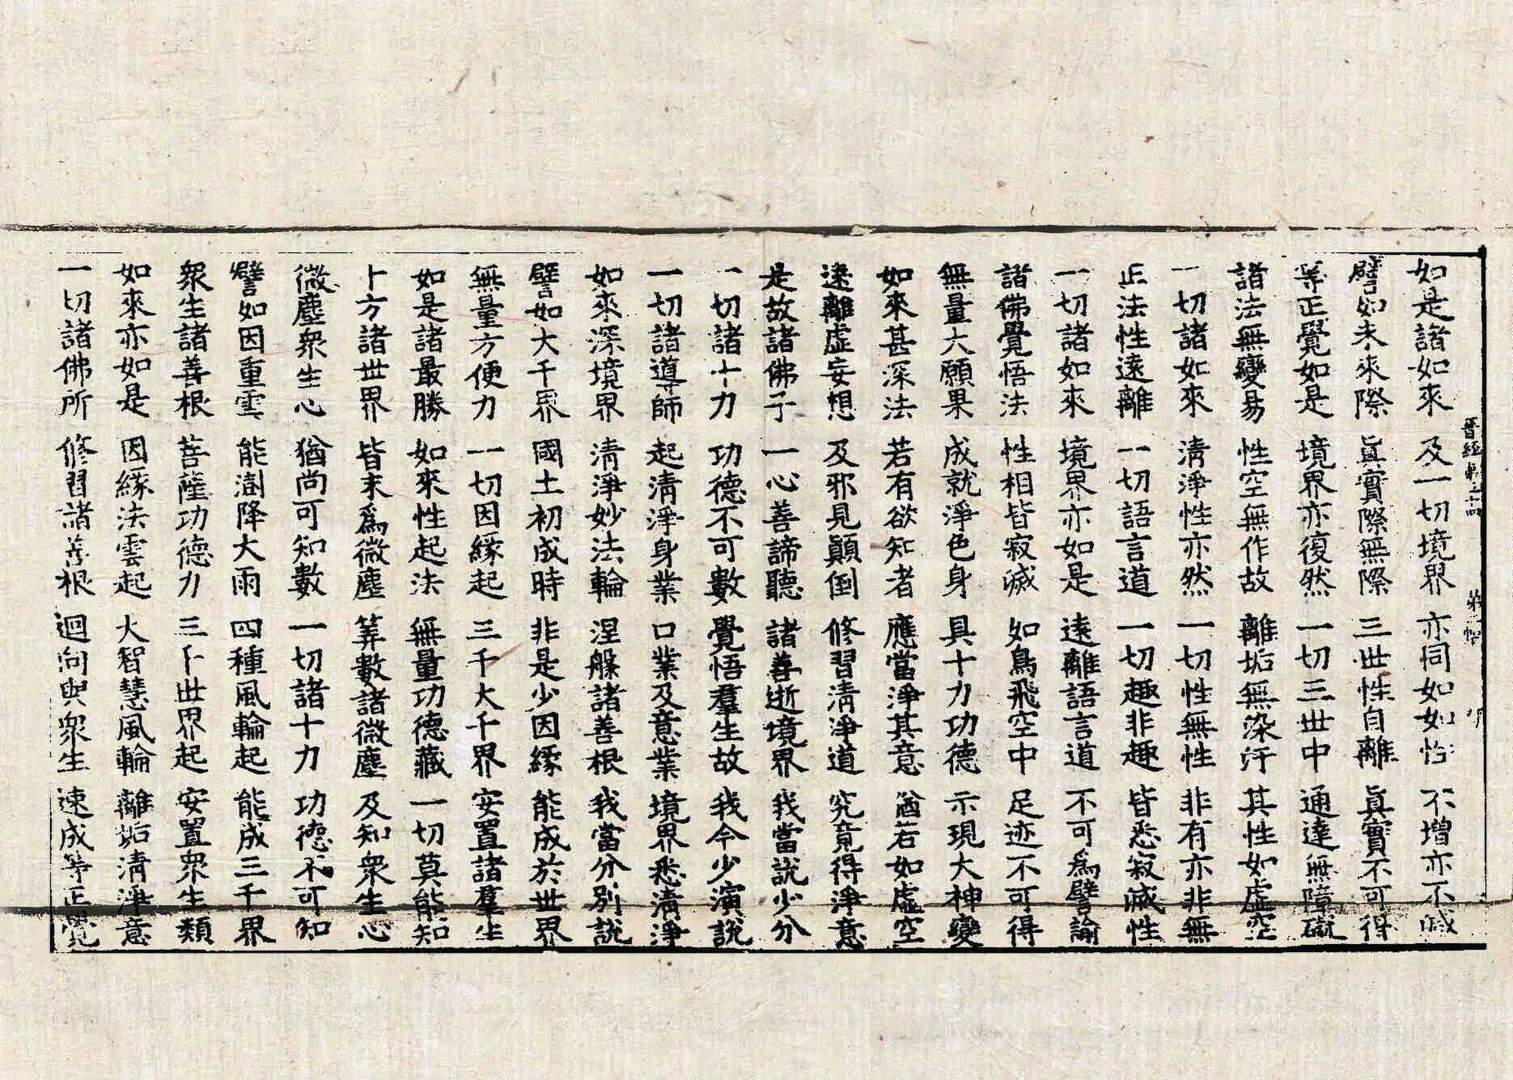 如是諸如來 及一切境界 亦同如如性 不增亦不減
譬如未來際 眞實際無際 三世性自離 眞實不可得
等正覺如是 境界亦復然 一切三世中 通達無障礙
諸法無變易 性空無作故 離垢無染汙 其性如虛空
一切諸如來 清淨性亦然 一切性無性 非有亦非無
正法性遠離 一切語言道 一切趣非趣 皆悉寂滅性
一切諸如來 境界亦如是 遠離語言道 不可爲譬諭
諸佛覺悟法 性相皆寂滅 如鳥飛空中 足迹不可得
無量大願果 成就淨色身 具十力功德 示現大神變
如來甚深法 若有欲知者 應當淨其意 猶若如虛空
遠離虛妄想 及邪見顚倒 修習清淨道 究竟得淨意
是故諸佛子 一心善諦聽 諸善逝境界 我當說少分
一切諸十力 功德不可數 覺悟羣生故 我今少演說
一切諸導師 起清淨身業 口業及意業 境界悉清淨
如來深境界 清淨妙法輪 涅槃諸善根 我當分別說
譬如大千界 國土初成時 非是少因緣 能成於世界
無量方便力 一切因緣起 三千大千界 安置諸羣生
如是諸最勝 如來性起法 無量功德藏 一切莫能知
十方諸世界 皆末爲微塵 筭數諸微塵 及知衆生心
微塵衆生心 猶尚可知數 一切諸十力 功德不可知
譬如因重雲 能澍降大雨 四種風輪起 能成三千界
衆生諸善根 菩薩功德力 三千世界起 安置衆生類
如來亦如是 因緣法雲起 大智慧風輪 離垢清淨意
一切諸佛所 修習諸善根 迴向與衆生 速成等正覺